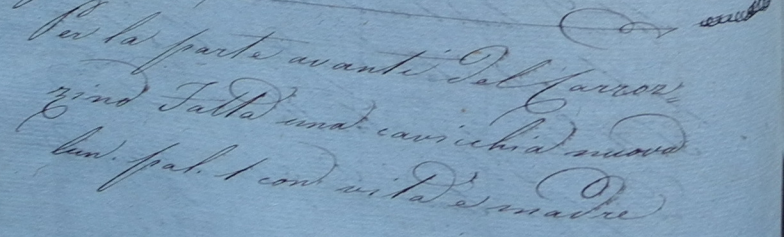 Per la parte avanti del Carroz=
zino Fatta una cavicchia nuova
lun. pal. 1 con vita e madre